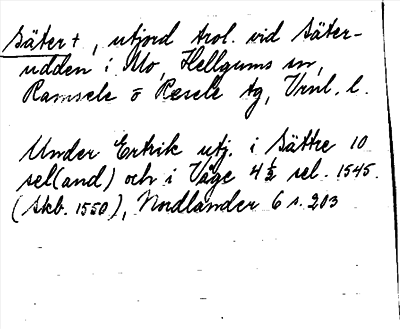 Säter +, utjord trol. vid Säter-
udden i Mo, Hellgums sn,
Ramsele o Resele tg, Vrnl. l.
Under Ertrik utj. i Sättre 10
sel(and) och i Våge 4 ½ sel. 1545.
(Skb. 1550), Nordlander 6 s. 203